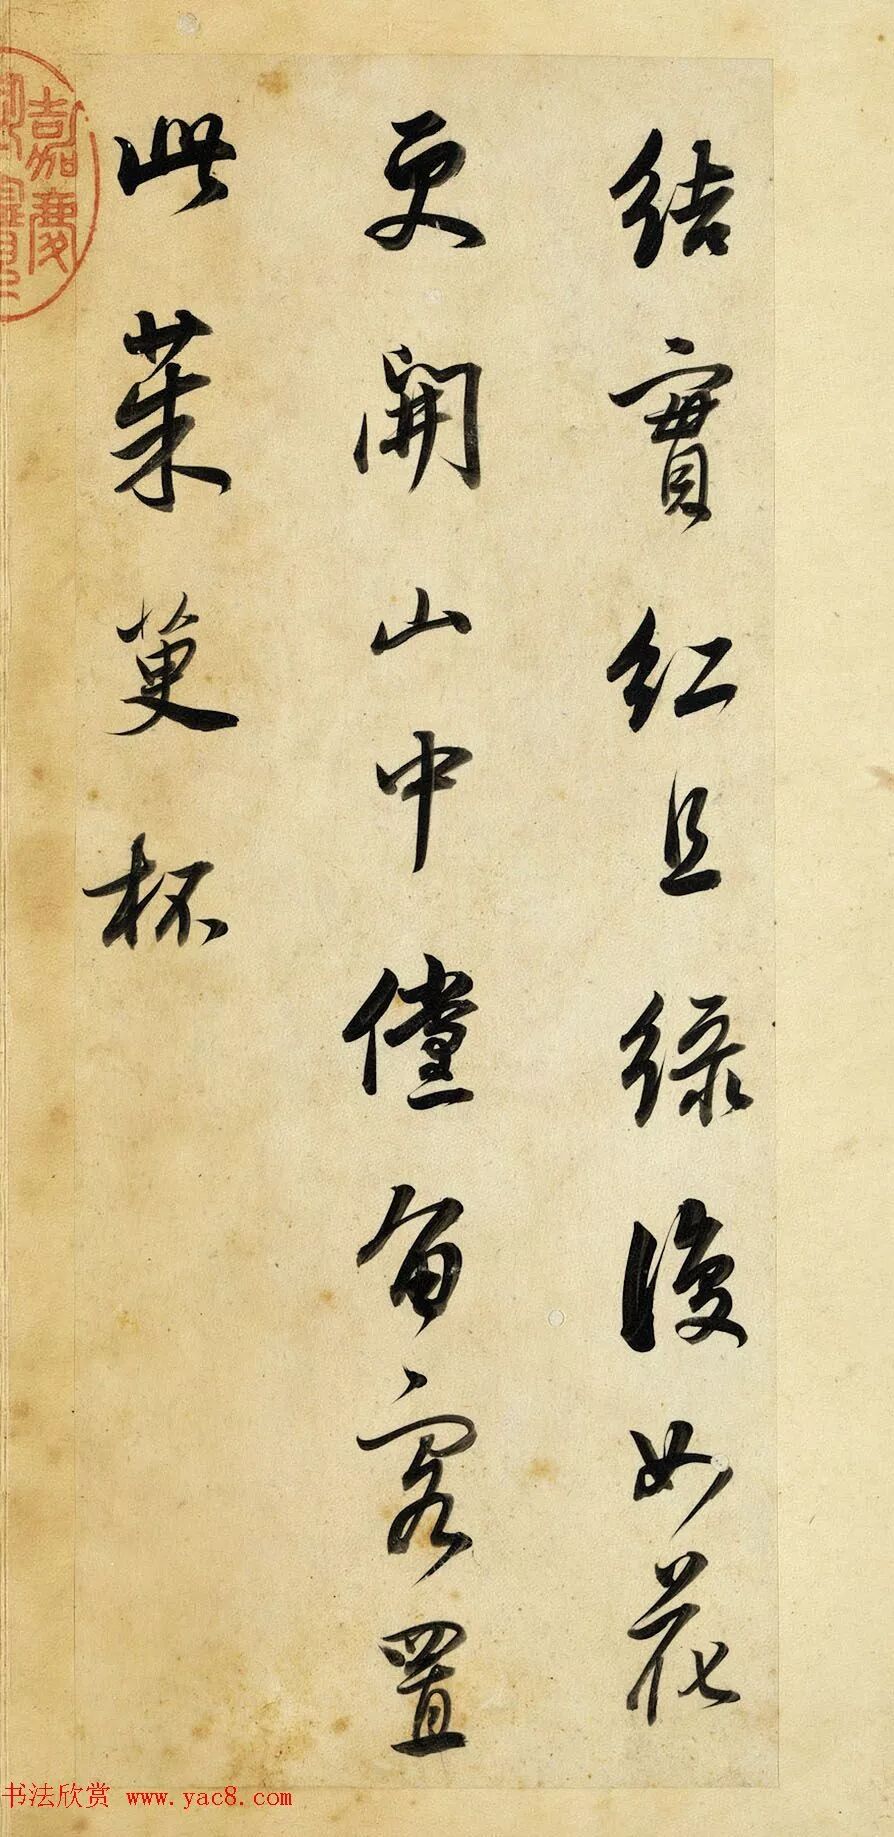 結實紅且綠復如花
更開山中儻留客置
此茱萸杯
嘉慶
书法欣赏 www.yac8.com